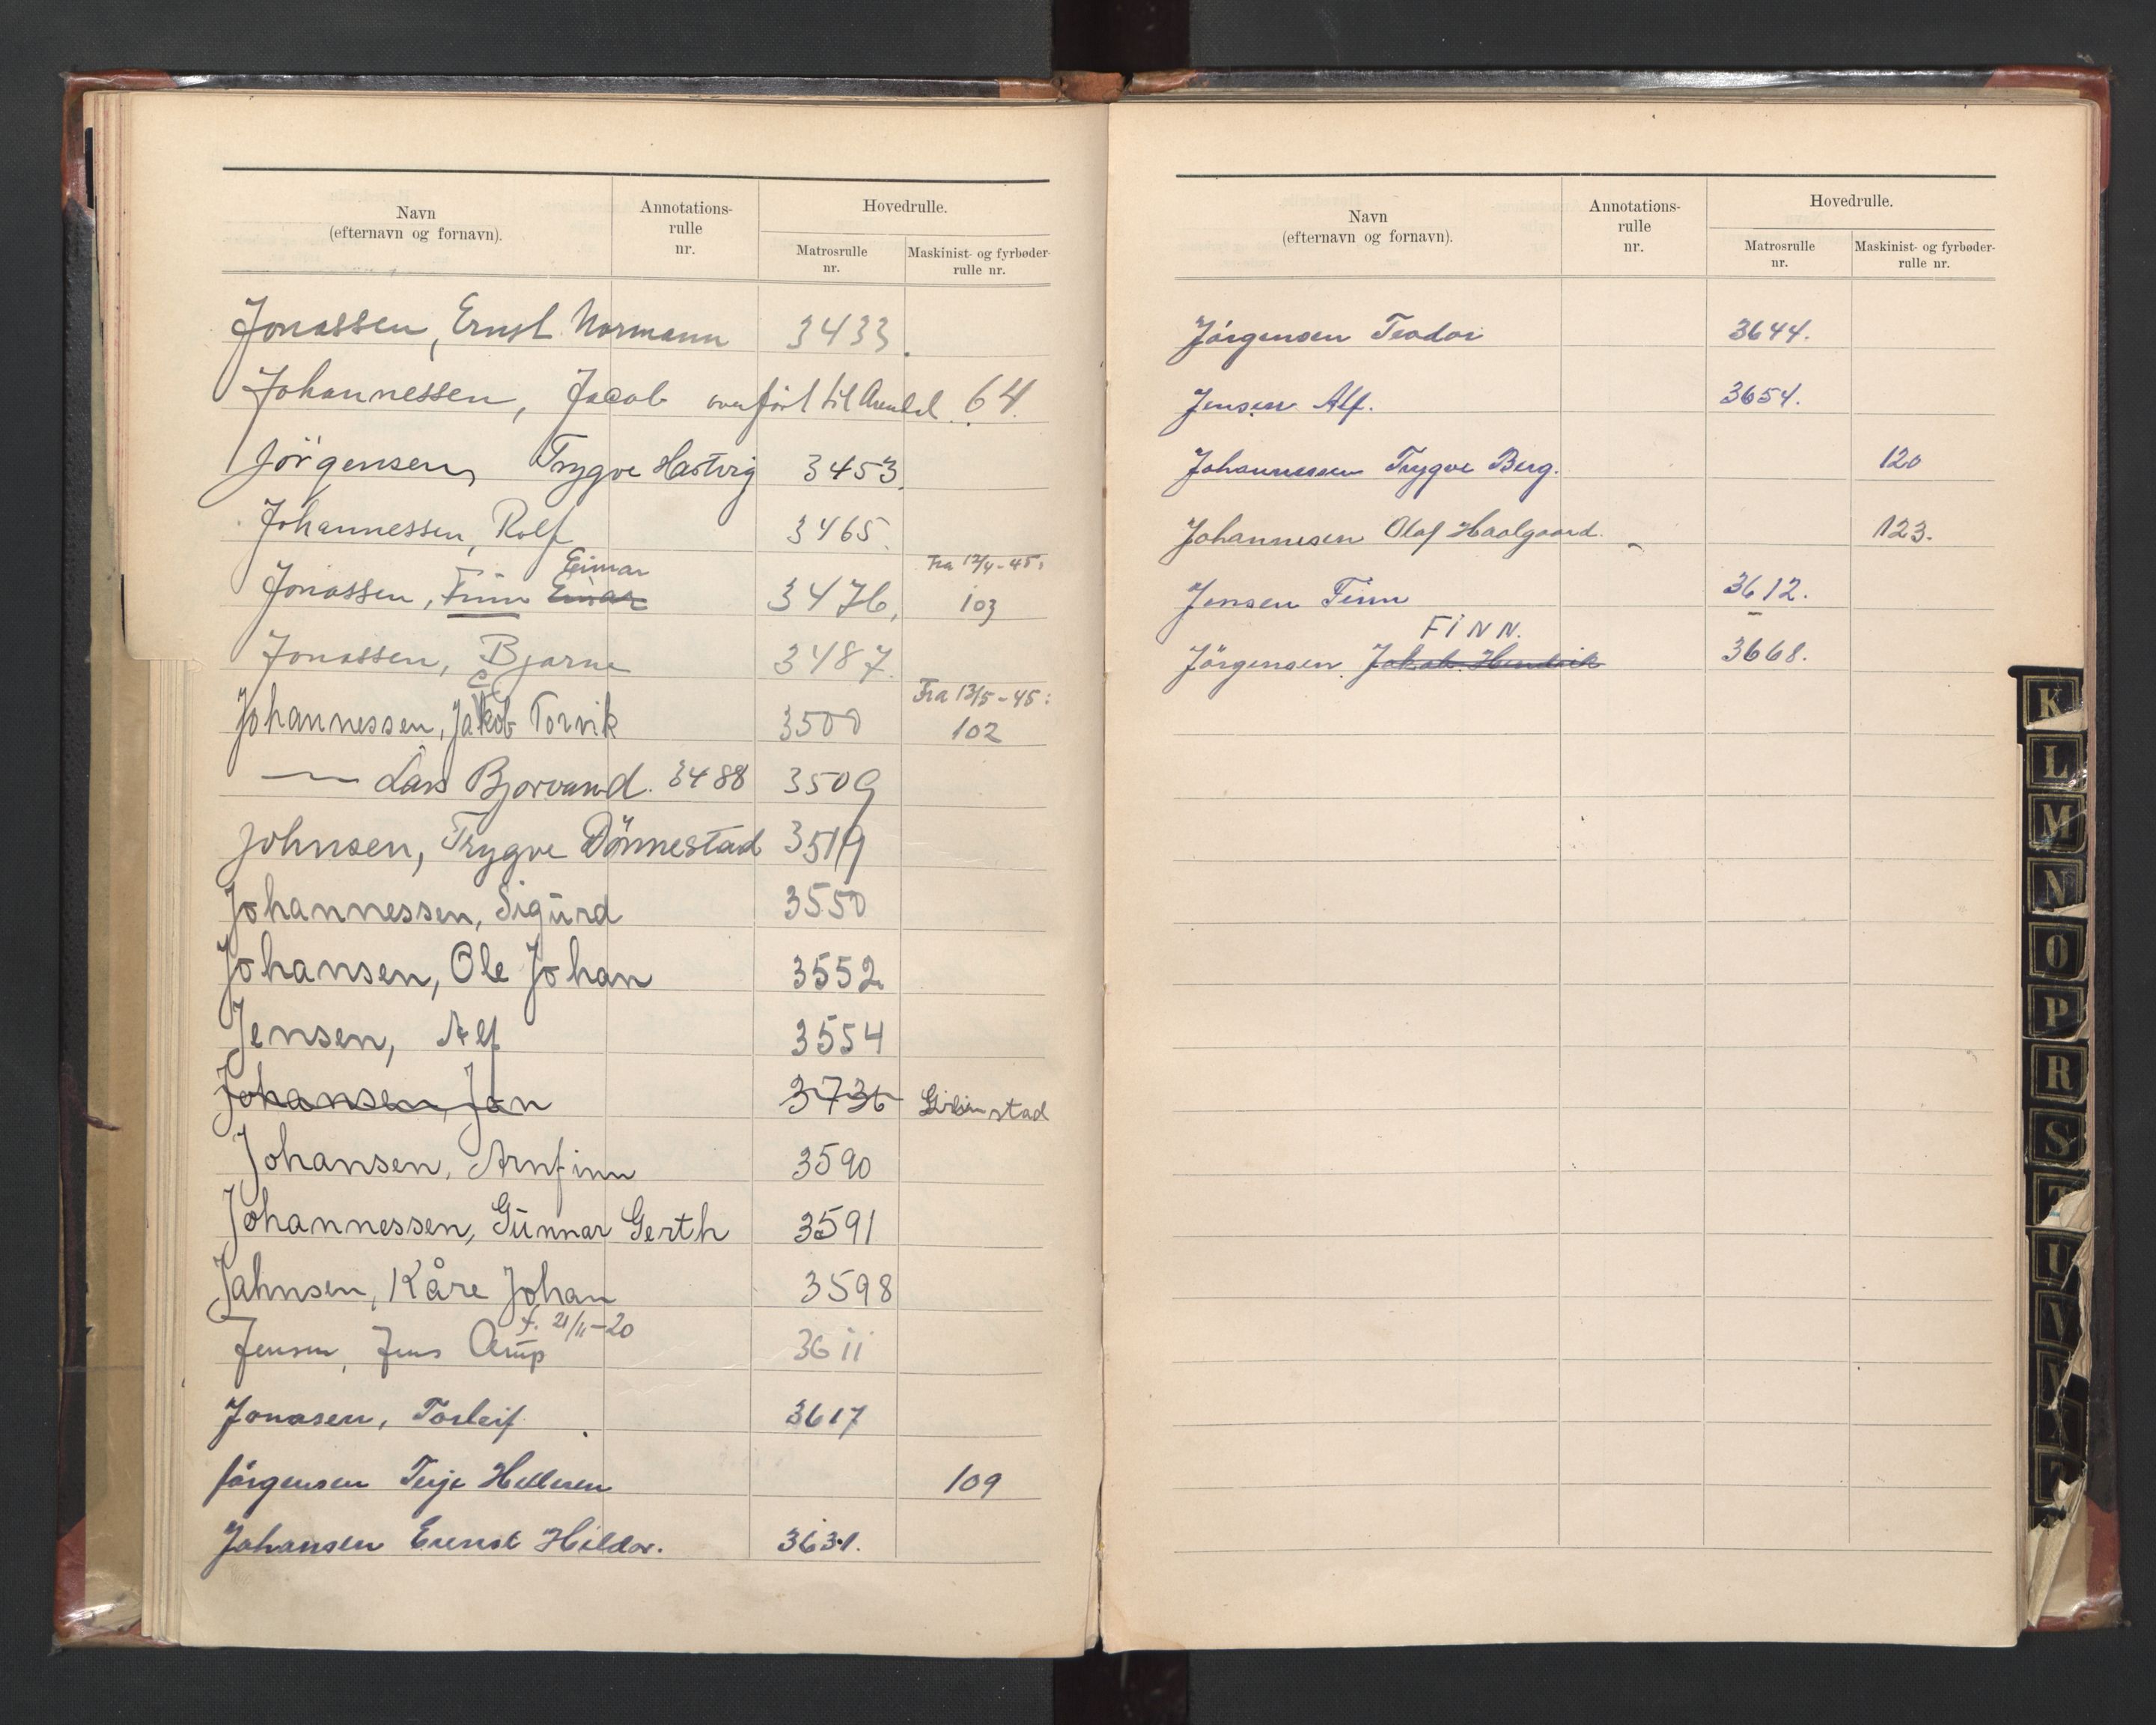 Navn
(efternavn og fornavn).
Annotations-
rulle
nr.
Hovedrulle.
Matrosrulle
nr.
Maskinist- og fyrbøder-
rulle nr.
Jonassen, Ernst Normann 3433.
Johannessen, Jacob overført til Arendal. 64.
Jörgensen, Trygve Hartvig 3453.
Johannessen, Rolf 3465.
Einar Fra 12/4-45:
Jonassen, Finn Einar 3476. 103
Jonassen, Bjarne 3487.
c Fra 13/5-45:
Johannessen, Jakob Torvik 3500 102
— Lars Bjorvand. 3488 3509
Johnsen, Trygve Dönnestad 3519
Johannessen, Sigurd 3550
Johansen, Ole Johan 3552
Jensen, Alf 3554
Johansen, Jan 3736
Johansen, Arnfinn 3590
Johannessen, Gunnar Gerth 3591
Jahnsen, Kåre Johan 3598
f. 21/11-20
Jensen, Jens Arup 3611
Jonasen, Torleif. 3617
Jörgensen Terje Helleren 109
Johansen Evenst Hildor. 3631.
Navn
(efternavn og fornavn).
Annotations-
rulle
nr.
Hovedrulle.
Matrosrulle
nr.
Maskinist- og fyrbøder-
rulle nr.
Jörgensen Teodor 3644.
Jensen Alf. 3654.
Johannessen Trygve Berg. 120
Johannesen Olaf Haalgaard. 123.
Jensen Finn 3612.
FINN.
Jörgensen. Jakob Hendrik 3668.
K
L
M
N
O
P
R
S
T
U
V